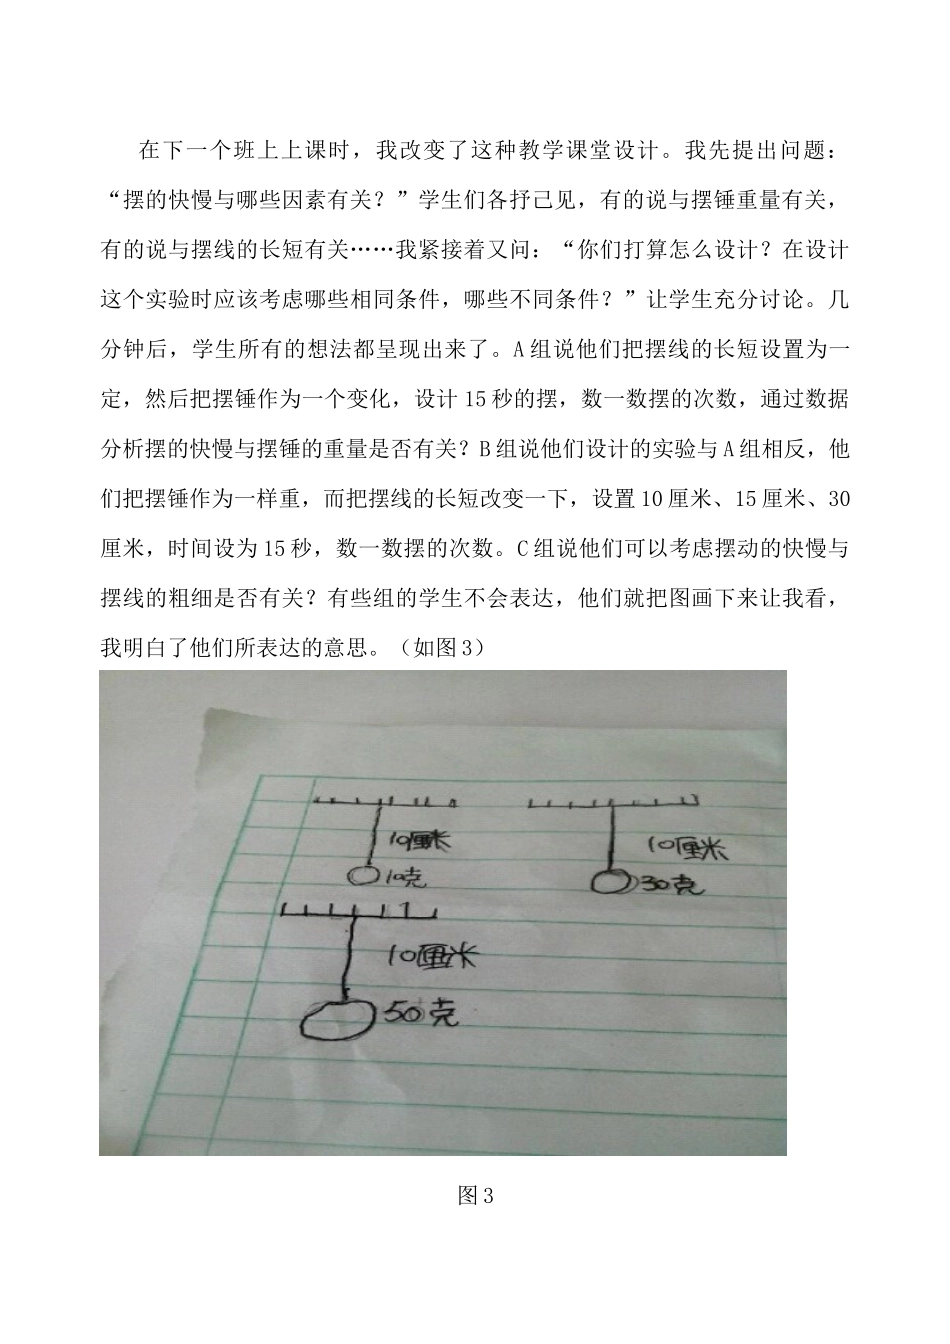 在下一个班上上课时，我改变了这种教学课堂设计。我先提出问题：
“摆的快慢与哪些因素有关？”学生们各抒己见，有的说与摆锤重量有关，
有的说与摆线的长短有关……我紧接着又问：“你们打算怎么设计？在设计
这个实验时应该考虑哪些相同条件，哪些不同条件？”让学生充分讨论。几
分钟后，学生所有的想法都呈现出来了。A 组说他们把摆线的长短设置为一
定，然后把摆锤作为一个变化，设计 15 秒的摆，数一数摆的次数，通过数据
分析摆的快慢与摆锤的重量是否有关？B 组说他们设计的实验与 A 组相反，他
们把摆锤作为一样重，而把摆线的长短改变一下，设置 10 厘米、15 厘米、30
厘米，时间设为 15 秒，数一数摆的次数。C 组说他们可以考虑摆动的快慢与
摆线的粗细是否有关？有些组的学生不会表达，他们就把图画下来让我看，
我明白了他们所表达的意思。（如图 3）
10厘米
10克
10厘米
30克
10厘米
50克
图 3